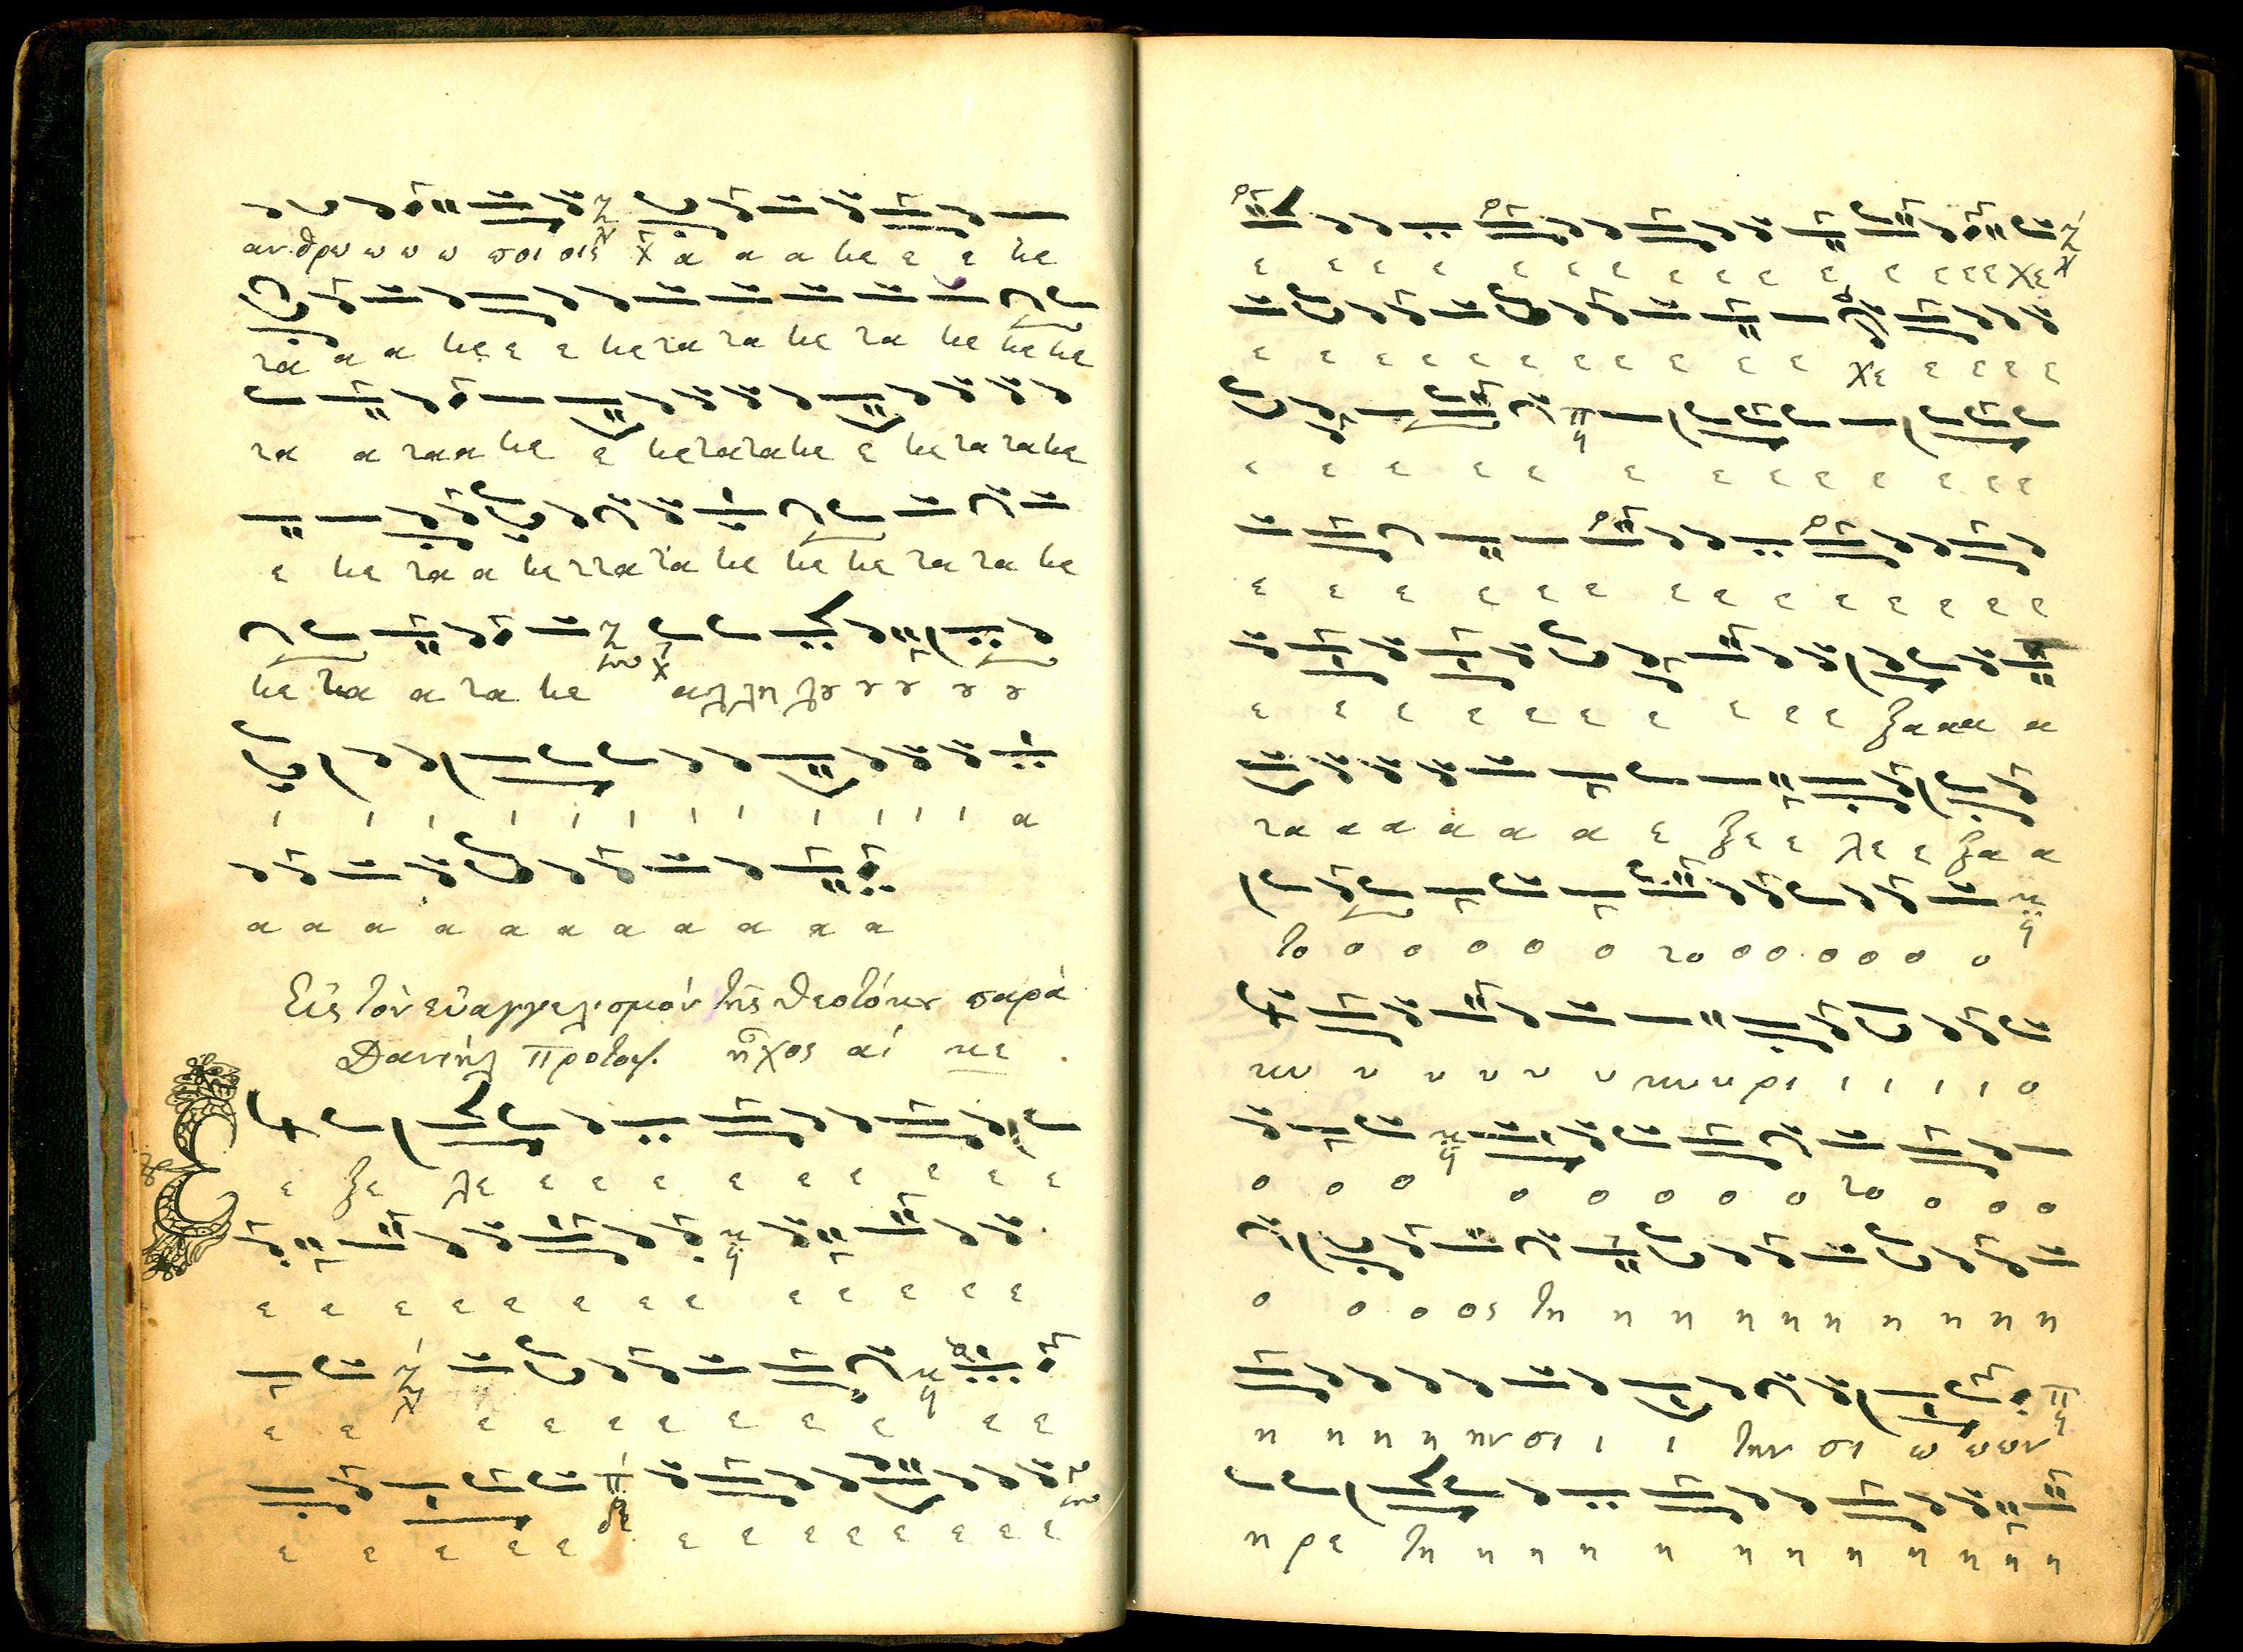 ανθρω ω ω ω ποι οις α α α τε ε ε τε
ρα α α τε ε ε τε ρα ρα τε ρα τε τε τε
ρα α ρα α τε ε τε ρα ρα τε ε τε ρα ρα τε
ε τε ρα α τε ρ ρα ρα τε τε τε ρα ρα τε
τε ρα α ρα τε αλληλȣ ȣ ȣ ȣ ȣ
ι ι ι ι ι ι ι ι ι ι ι ι α
α α α α α α α α α α α
Εἰς τὸν εὐαγγελισμὸν τῆς Θεοτόκȣ παρὰ
Δανιὴλ Πρωτοψ. ἦχος αʹ κε
Ε ε ξε λε ε ε ε ε ε ε ε ε ε
ε ε ε ε ε ε ε ε ε ε ε ε ε
ε ε ε ε ε ε ε ε ε ε ε
ε ε ε ε ε ε ε ε ε ε ε ε ε
ε ε ε ε ε ε ε ε ε ε ε ε ε ε ε χε
ε ε ε ε ε ε ε ε ε ε ε χε ε ε ε ε
ε ε ε ε ε ε ε ε ε ε ε ε ε ε
ε ε ε ε ε ε ε ε ε ε ε ε ε ε
ε ε ε ε ε ε ε ε ε ε ξα α α α
ρα α α α α α ε ξε ε λε ε ξα α
το ο ο ο ο ο ρο ο ο ο ο ο ο
κυ υ υ υ υ υ κυυκρι ι ι ι ι ο
ο ο ο ο ο ο ο ο ρο ο ο ο
ο ο ο ος τη η η η η η η η η η
η η η η ην σι ι ι την σι ω ωων
η ρε τη η η η η η η η η η η η